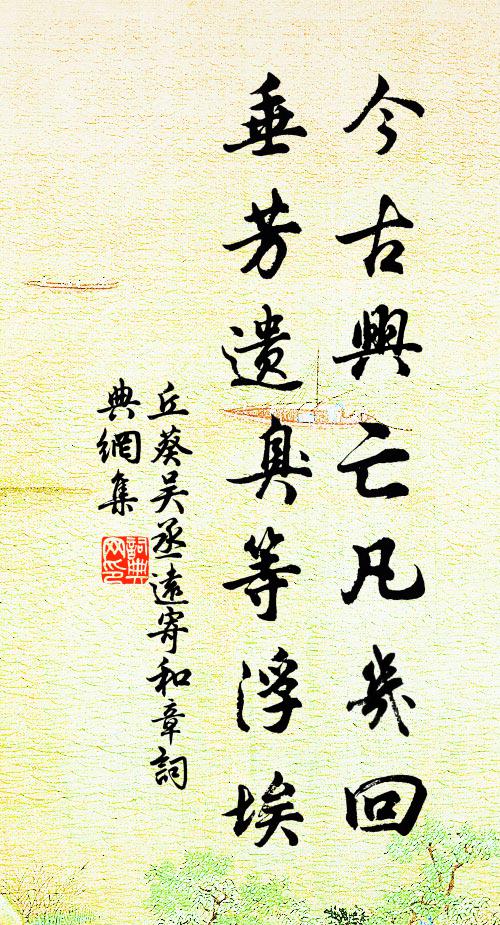 今古興亡凡幾回
垂芳遺臭等浮埃
丘葵吴丞遠寄和章詞
典網集
詞典
网印